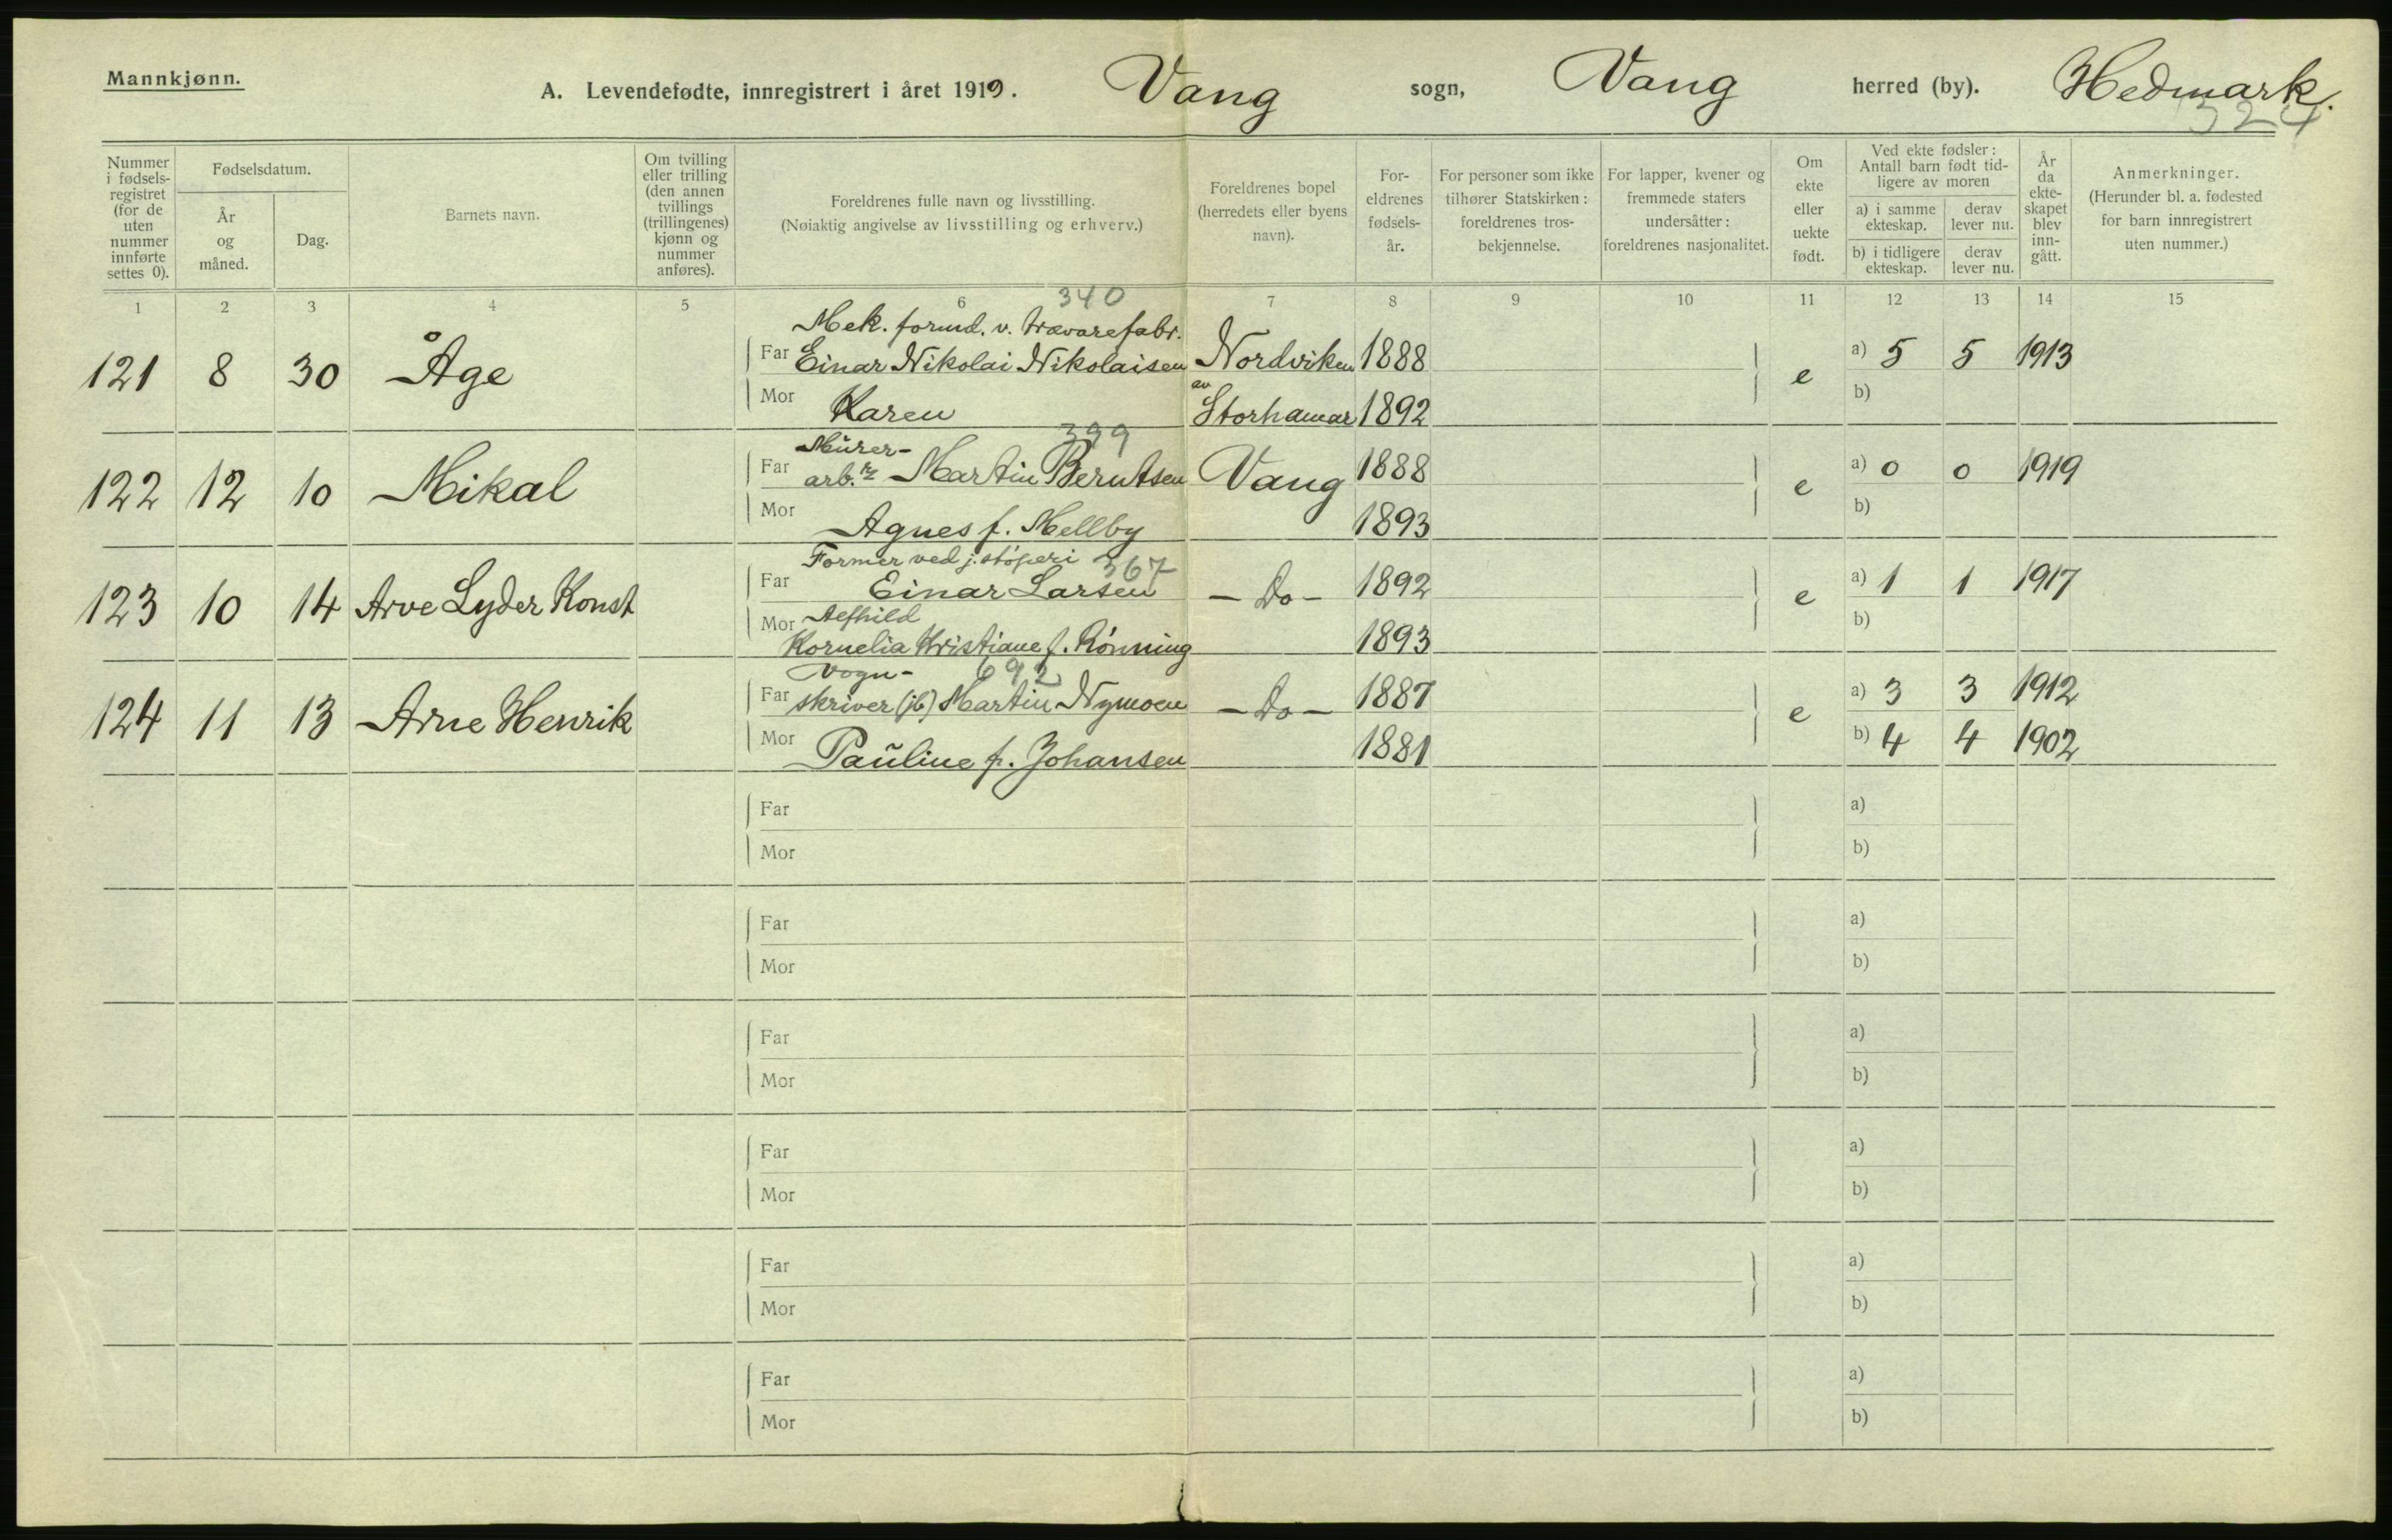 Mannkjønn.
A. Levendefødte, innregistrert i året 1919. Vang sogn, Vang herred (by). Hedmark.
324
Nummer i fødsels-registret (for de uten nummer innførte settes 0).
Fødselsdatum.
År og måned.
Dag.
Barnets navn.
Om tvilling eller trilling (den annen tvillings (trillingenes) kjønn og nummer anføres).
Foreldrenes fulle navn og livsstilling.
(Nøiaktig angivelse av livsstilling og erhverv.)
Foreldrenes bopel (herredets eller byens navn).
For-eldrenes fødsels-år.
For personer som ikke tilhører Statskirken: foreldrenes tros-bekjennelse.
For lapper, kvener og fremmede staters undersåtter: foreldrenes nasjonalitet.
Om ekte eller uekte født.
Ved ekte fødsler: Antall barn født tid-ligere av moren
a) i samme ekteskap.
derav lever nu.
b) i tidligere ekteskap.
derav lever nu.
År da ekte-skapet blev inn-gått.
Anmerkninger.
(Herunder bl. a. fødested for barn innregistrert uten nummer.)
1 2 3 4 5 6 7 8 9 10 11 12 13 14 15
340
Mek. formd. v. trævarefabr.
121 8 30 Åge Far Einar Nikolai Nikolaisen Nordviken 1888 e a) 5 5 1913
Mor Karen av Storhamar 1892 b)
399
Murer-
122 12 10 Mikal Far arb. Martin Berntsen Vang 1888 e a) 0 0 1919
Mor Agnes f. Mellby 1893 b)
Former ved j.støperi 367
123 10 14 Arve Lyder Konst Far Einar Larsen - Do - 1892 e a) 1 1 1917
Mor Kornelia Kristiane f. Rønning 1893 b)
Vogn- 692
124 11 13 Arne Henrik Far skriver (jb) Martin Nymoen - Do - 1887 e a) 3 3 1912
Mor Pauline f. Johansen 1881 b) 4 4 1902
Far a)
Mor b)
Far a)
Mor b)
Far a)
Mor b)
Far a)
Mor b)
Far a)
Mor b)
Far a)
Mor b)